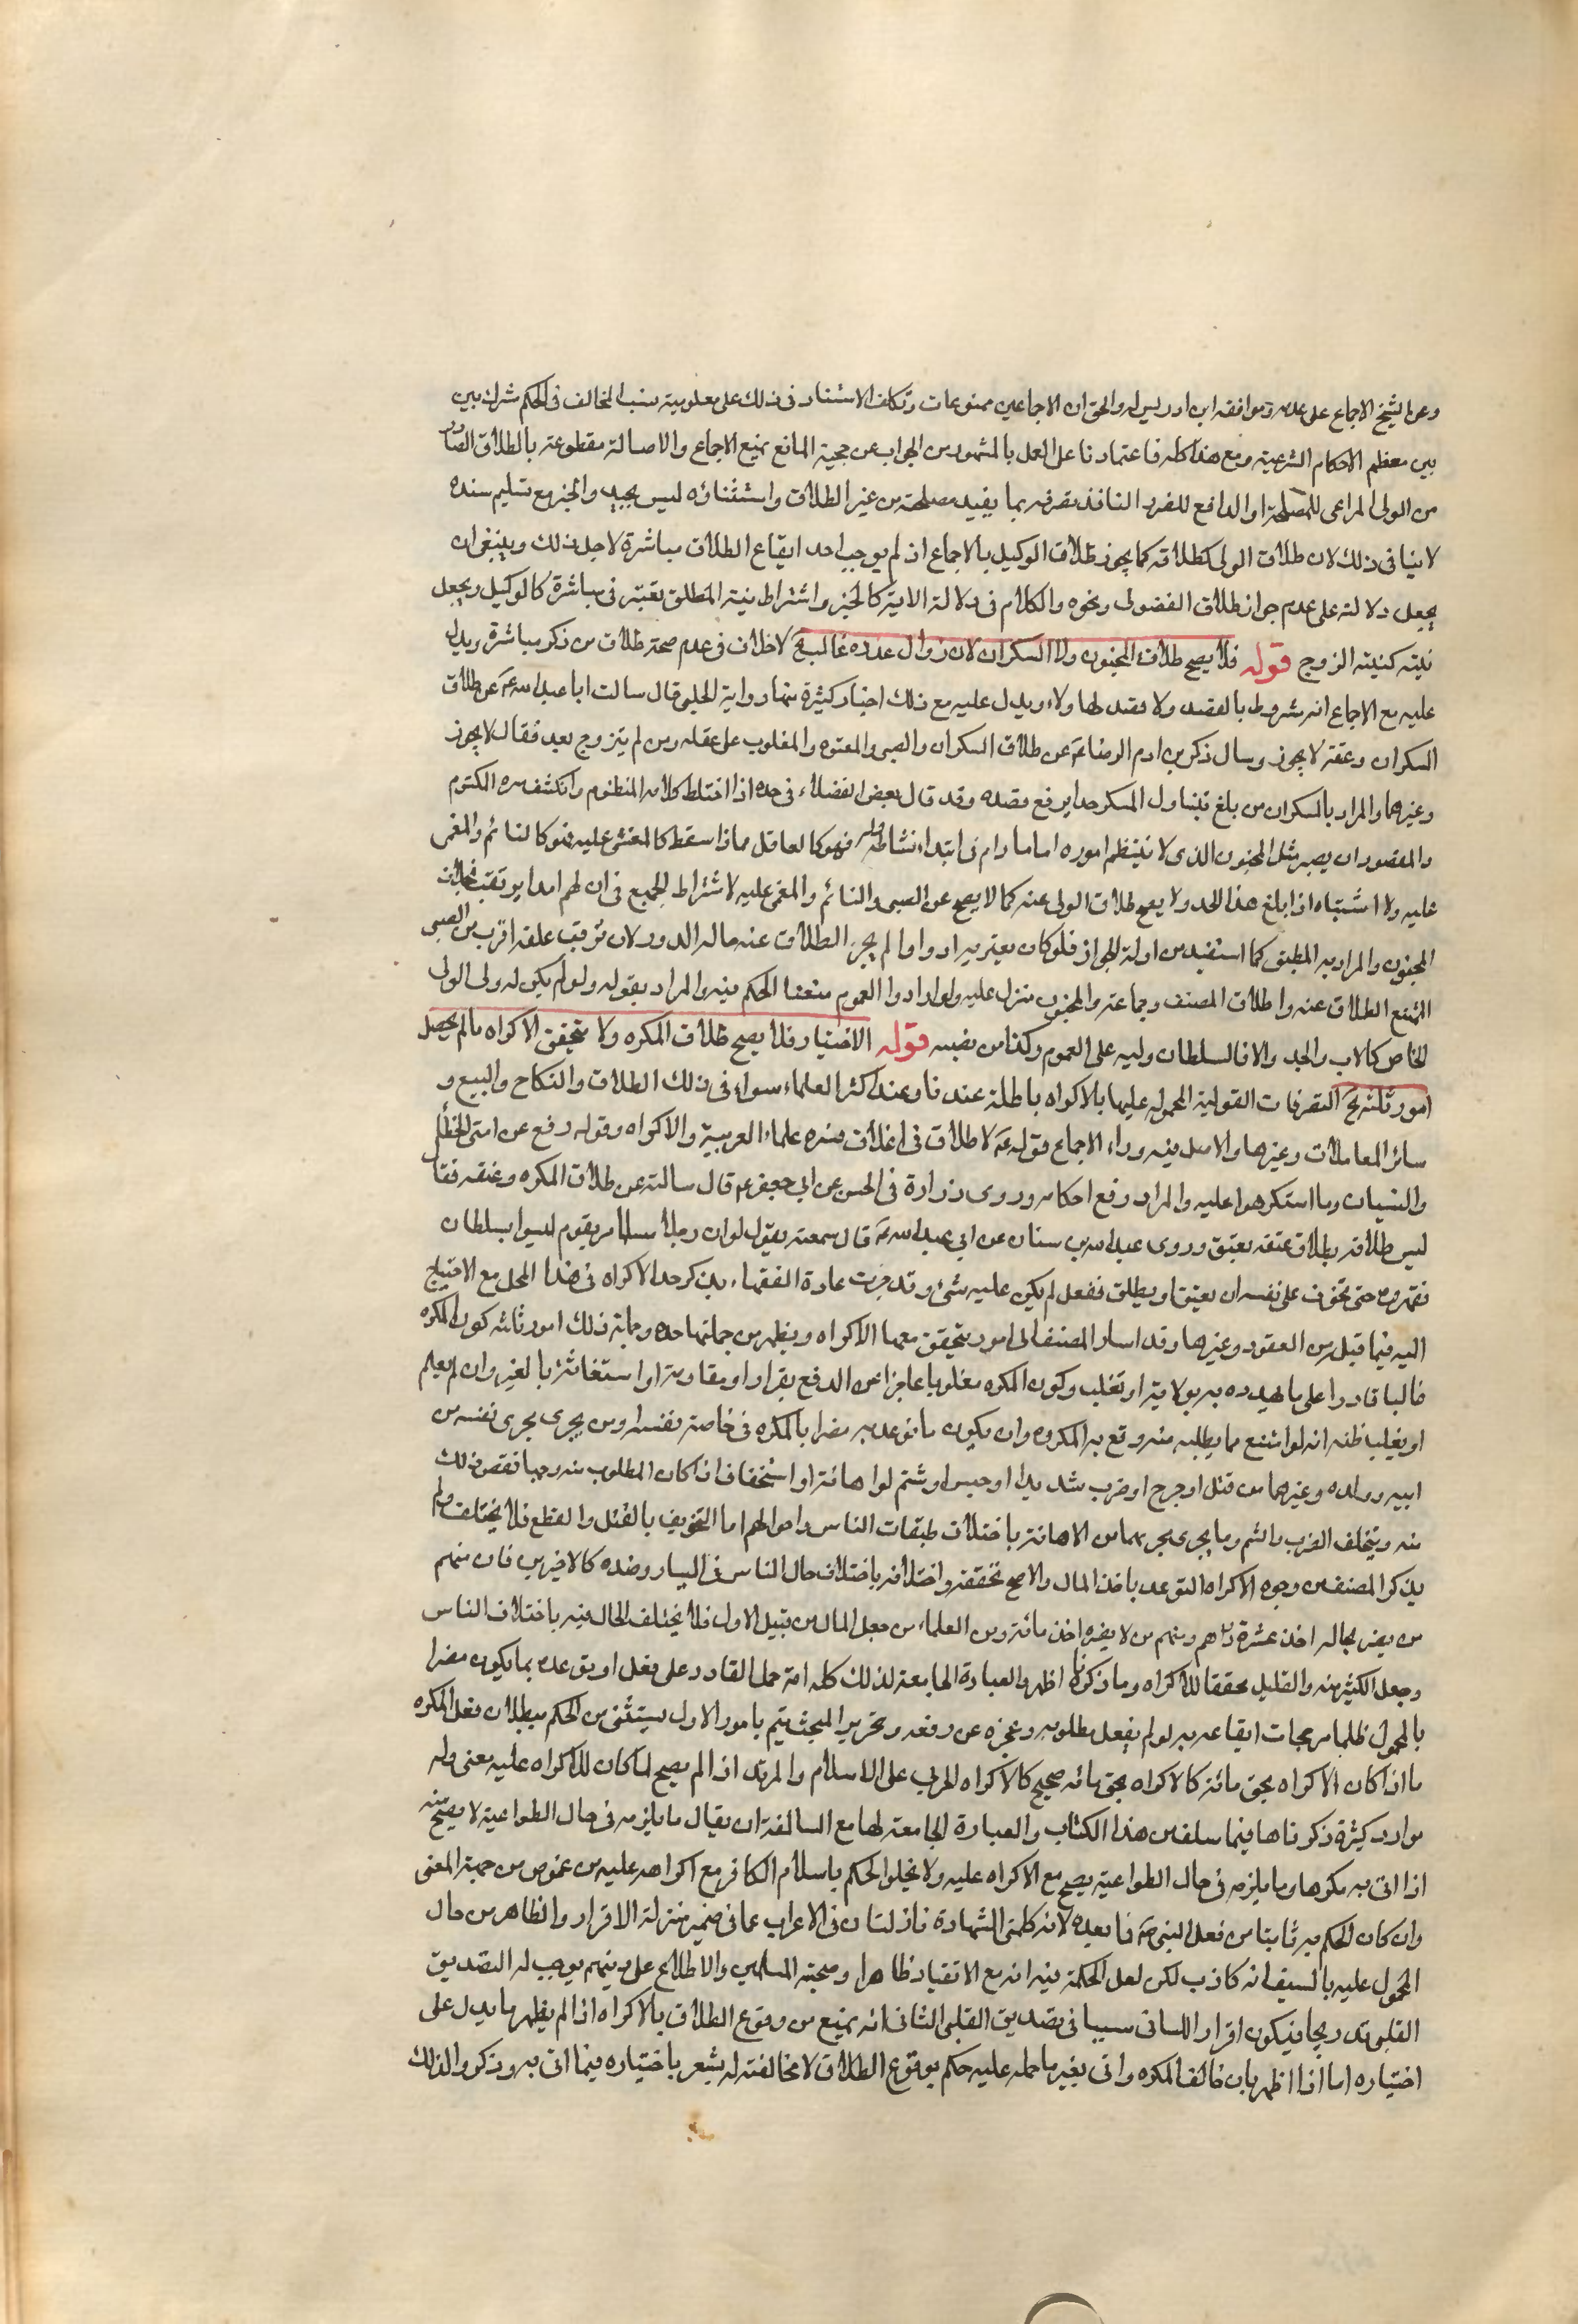 وعن الشيخ الاجماع على عدمه وموافقه ابن ادريس له والحق ان الاجماعين ممنوعات وتكلف الاستناد فى ذلك على معلومية نسب المخالف فى الحكم مشترك بين
بين معظم الاحكام الشرعية ومع هذا كله فاعتمادنا على العمل بالمشهور من الجواب عن حجية المانع بمنع الاجماع والاصالة مقطوعة بالطلاق الصادر
من الولى المراعى للمصلحة او الدافع للضرر النافذ تصرفه بما يفيد مصلحة من غير الطلاق واستثنائه ليس بجيد والخبر مع تسليم سنده
لا ينافى ذلك لان طلاق الولى كطلاقه كما يجوز طلاق الوكيل بالاجماع اذ لم يوجب احد ايقاع الطلاق مباشرة لاجل ذلك وينبغى ان
يجعل دلالته على عدم جواز طلاق الفضولى ونحوه والكلام فى دلالة الاية كالخبر واشتراط نية المطلق يعتبر فى مباشرة كالوكيل ويجعل
نيته كنية الزوج قوله فلا يصح طلاق المجنون ولا السكران لان زوال عذره غالب الخ لا خلاف فى عدم صحة طلاق من ذكر مباشرة ويدل
عليه مع الاجماع انه مشروط بالقصد ولا قصد لهولاء ويدل عليه مع ذلك اخبار كثيرة منها رواية الحلبى قال سالت ابا عبد الله ع عن طلاق
السكران وعتقه لا يجوز وسال ذكر بن ادم الرضا ع عن طلاق السكران والصبى والمعتوه والمغلوب على عقله ومن لم يتزوج بعد فقال لا يجوز
وغيرهما والمراد بالسكران من بلغ بتناول المسكر حدا يرفع قصده وقد قال بعض الفضلاء فى حده اذا اختلط كلامه المنظوم وانكشف سره المكتوم
والمقصود ان يصير مثل المجنون الذى لا ينتظم اموره اما ما دام فى ابتداء نشاطه فهو كالعاقل واذا سقط كالمغشى عليه فهو كالنائم والمغمى
عليه ولا اشتباه اذا بلغ هذا الحد ولا يصح طلاق الولى عنه كما لا يصح عن الصبى والنائم والمغمى عليه لاشتراط الجميع فى ان لهم امدا يرتقب بخلاف
المجنون والمراد به المطبق كما استفيد من ادلة الجواز فلو كان يعتريه ادوارا لم يجز الطلاق عنه حالة الدور لان ترقب عقله اقرب من الصبى
الممتنع الطلاق عنه واطلاق المصنف وجماعة والمجنون منزل عليه ولو ارادوا العموم منعنا الحكم فيه والمراد بقوله ولو لم يكن له ولى الولى
الخاص كالاب والجد والا فالسلطان وليه على العموم وكذا من نصبه قوله الاختيار فلا يصح طلاق المكره ولا يتحقق الاكراه ما لم يحصل
امور ثلثه الخ التصرفات القولية المحمولة عليها بالاكراه باطلة عندنا وعند اكثر العلماء سواء فى ذلك الطلاق والنكاح والبيع و
سائر المعاملات وغيرها والاصل فيه وراء الاجماع قوله ع لا طلاق فى اغلاق فسره علماء العربية والاكراه وقوله رفع عن امتى الخطأ
والنسيان وما استكرهوا عليه والمراد رفع احكامه وروى زرارة فى الحسن عن ابى جعفر ع قال سالته عن طلاق المكره وعتقه فقال
ليس طلاقه بطلاق عتقه بعتق وروى عبد الله بن سنان عن ابى عبد الله ع قال سمعته يقول لو ان رجلا مسلما مر بقوم ليسوا بسلطان
فقهروه حتى تخوف على نفسه ان يعتق او يطلق ففعل لم يكن عليه شئ وقد جرت عادة الفقهاء بذكر حد الاكراه فى هذا المحل مع الاحتياج
اليه فيما قبل من العقود وغيرها وقد اشار المصنف الى امور يتحقق معها الاكراه ويظهر من جملتها حده وجملة ذلك امور ثلثه كون المكره
غالبا قادرا على ما يهدده به بولاية او تغلب وكون المكره مغلوبا عاجزا عن الدفع بفرار او مقاومة او استغاثة بالغير وان لم يعلم
او يغلب ظنه انه لو امتنع مما يطلبه منه وقع به المكروه وان يكون ما توعد به مضرا بالمكره فى خاصة نفسه او من يجرى مجرى نفسه من
ابيه وولده وغيرهما من قتل او جرح او ضرب شديد او حبس او شتم او اهانة او استخفاف اذا كان المطلوب منه وجيها تنقص ذلك
منه ويختلف الضرب والشتم وما يجرى مجريهما من الاهانة باختلاف طبقات الناس واحوالهم اما التخويف بالقتل والقطع فلا يختلف ولم
يذكر المصنف من وجوه الاكراه التوعد باخذ المال والاصح تحققه واختلافه باختلاف حال الناس فى اليسار وضده كالاخيرين فان منهم
من يضر بحاله اخذ عشرة دراهم ومنهم من لا يضره اخذ مائة ومن العلماء من جعل المال من قبيل الاول فلا يختلف الحال فيه باختلاف الناس
وجعل الكثير منه والقليل محققا للاكراه وما ذكرناه اظهر والعبارة الجامعة لذلك كله انه حمل القادر على فعل او توعده بما يكون مضرا
بالمحمول ظلما مرجحات ايقاعه به لو لم يفعل مطلوبه وعجزه عن دفعه وتحرير المبحث يتم بامور الاول يستثنى من الحكم ببطلان فعل المكره
ما اذا كان الاكراه بحق مائة كالاكراه بحق فانه صحيح كالاكراه الحربى على الاسلام والمرتد اذ لم يصح لما كان للاكراه عليه معنى وله
موارد كثيرة ذكرناها فيما سلف من هذا الكتاب والعبارة الجامعة لها مع السالفة ان يقال ما يلزمه فى حال الطواعية لا يصح منه
اذا اتى به مكرها وما يلزمه فى حال الطواعية يصح مع الاكراه عليه ولا يخلو الحكم باسلام الكافر مع اكراهه عليه من غموض من جهة المعنى
وان كان الحكم به ثابتا من فعل النبى ص فما بعده لانه كلمتى الشهادة نازلتان فى الاعراب عما فى ضمير منزلة الاقرار والظاهر من حال
المحمول عليه بالسيف انه كاذب لكن لعل الحكمة فيه انه مع الانقياد ظاهرا وصحبة المسلمين والاطلاع على دينهم يوجب له التصديق
القلبى تدريجا فيكون اقرار اللسانى سببا فى تصديق القلبى الثانى انه يمنع من وقوع الطلاق بالاكراه اذا لم يظهر ما يدل على
اختياره اما اذا اظهر بان خالف المكره واتى بغير ما حمله عليه حكم بوقوع الطلاق لا مخالفته له يشعر باختياره فيما اتى به وذكروا لذلك